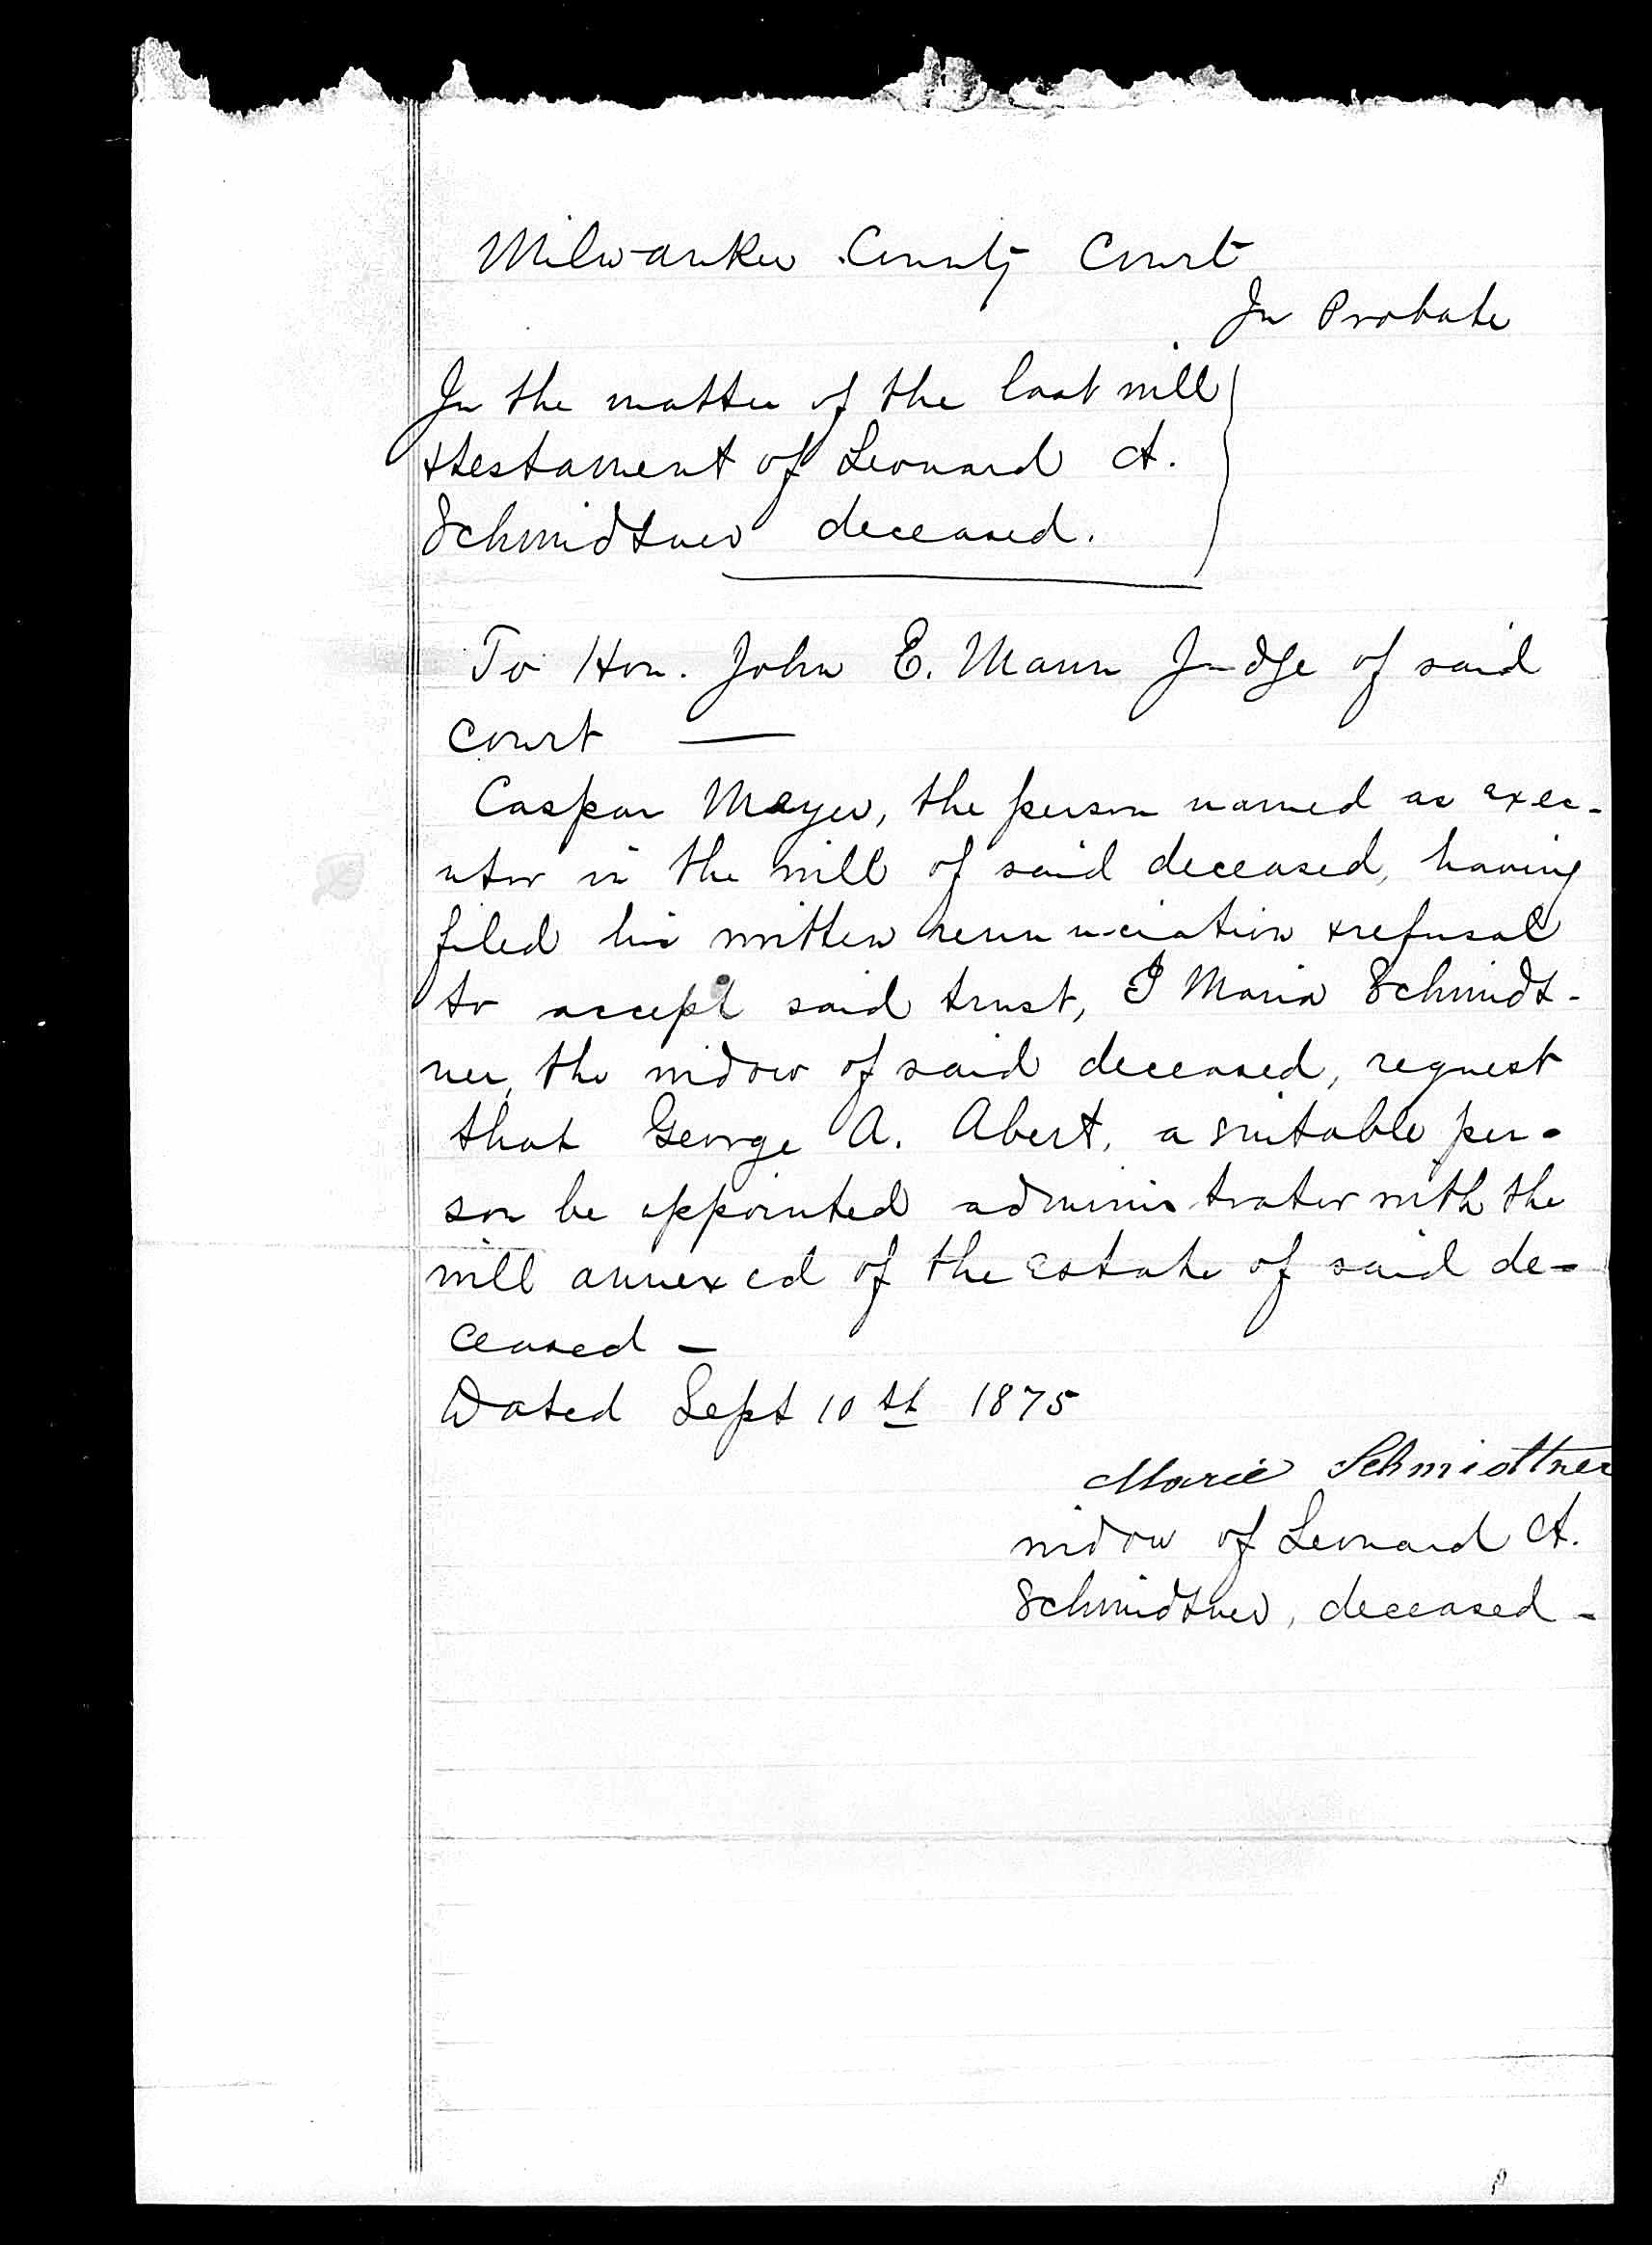 Milwaukee County Court
In Probate
In the matter of the last will
& testament of Leonard A.
Schmidtner deceased.
To Hon. John E. Mann Judge of said
court —
Caspar Meyer, the person named as exec-
utor in the will of said deceased, having
filed his written renunciation & refusal
to accept said trust, I Maria Schmidt-
ner, the widow of said deceased, request
that George A. Abert, a suitable per-
son be appointed administrator with the
will annexed of the estate of said de-
ceased —
Dated Sept 10th 1875
Marie Schmidtner
widow of Leonard A.
Schmidtner, deceased -